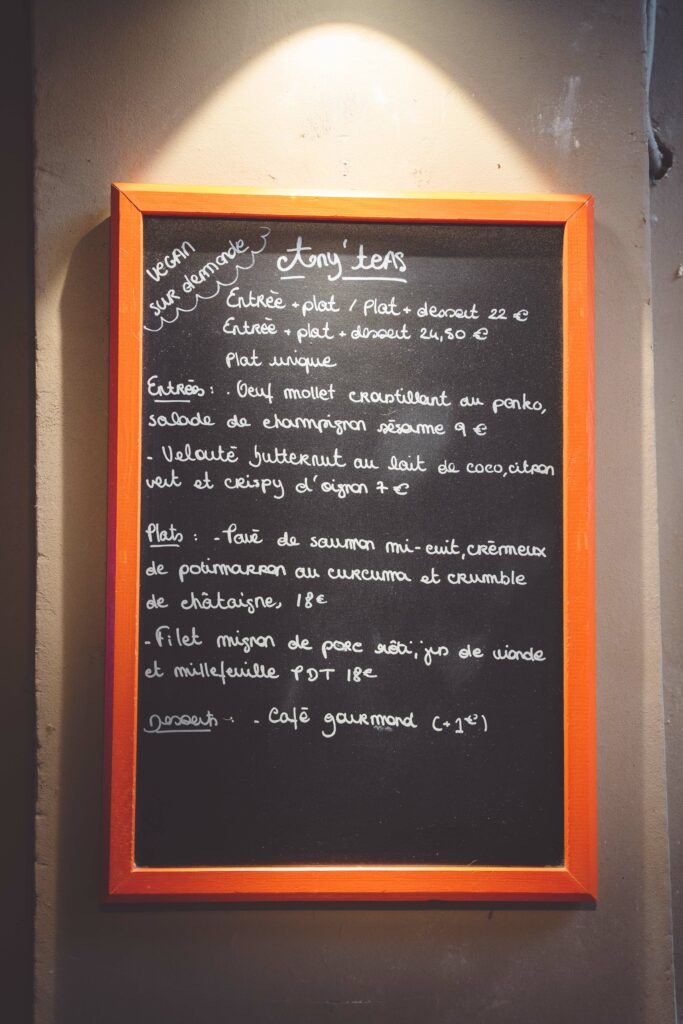 VEGAN
SUR demande
Any'teas
Entrée + plat / Plat + dessert 22 €
Entrée + plat + dessert 24,50 €
Plat unique
Entrées : . Oeuf mollet croustillant au panko,
salade de champignon sésame 9 €
- Velouté butternut au lait de coco, citron
vert et crispy d'oignon 7 €
Plats : - Pavé de saumon mi-cuit, crémeux
de potimarron au curcuma et crumble
de châtaigne, 18€
- Filet mignon de porc rôti, jus de viande
et millefeuille PDT 18€
Desserts : - Café gourmand (+1€)